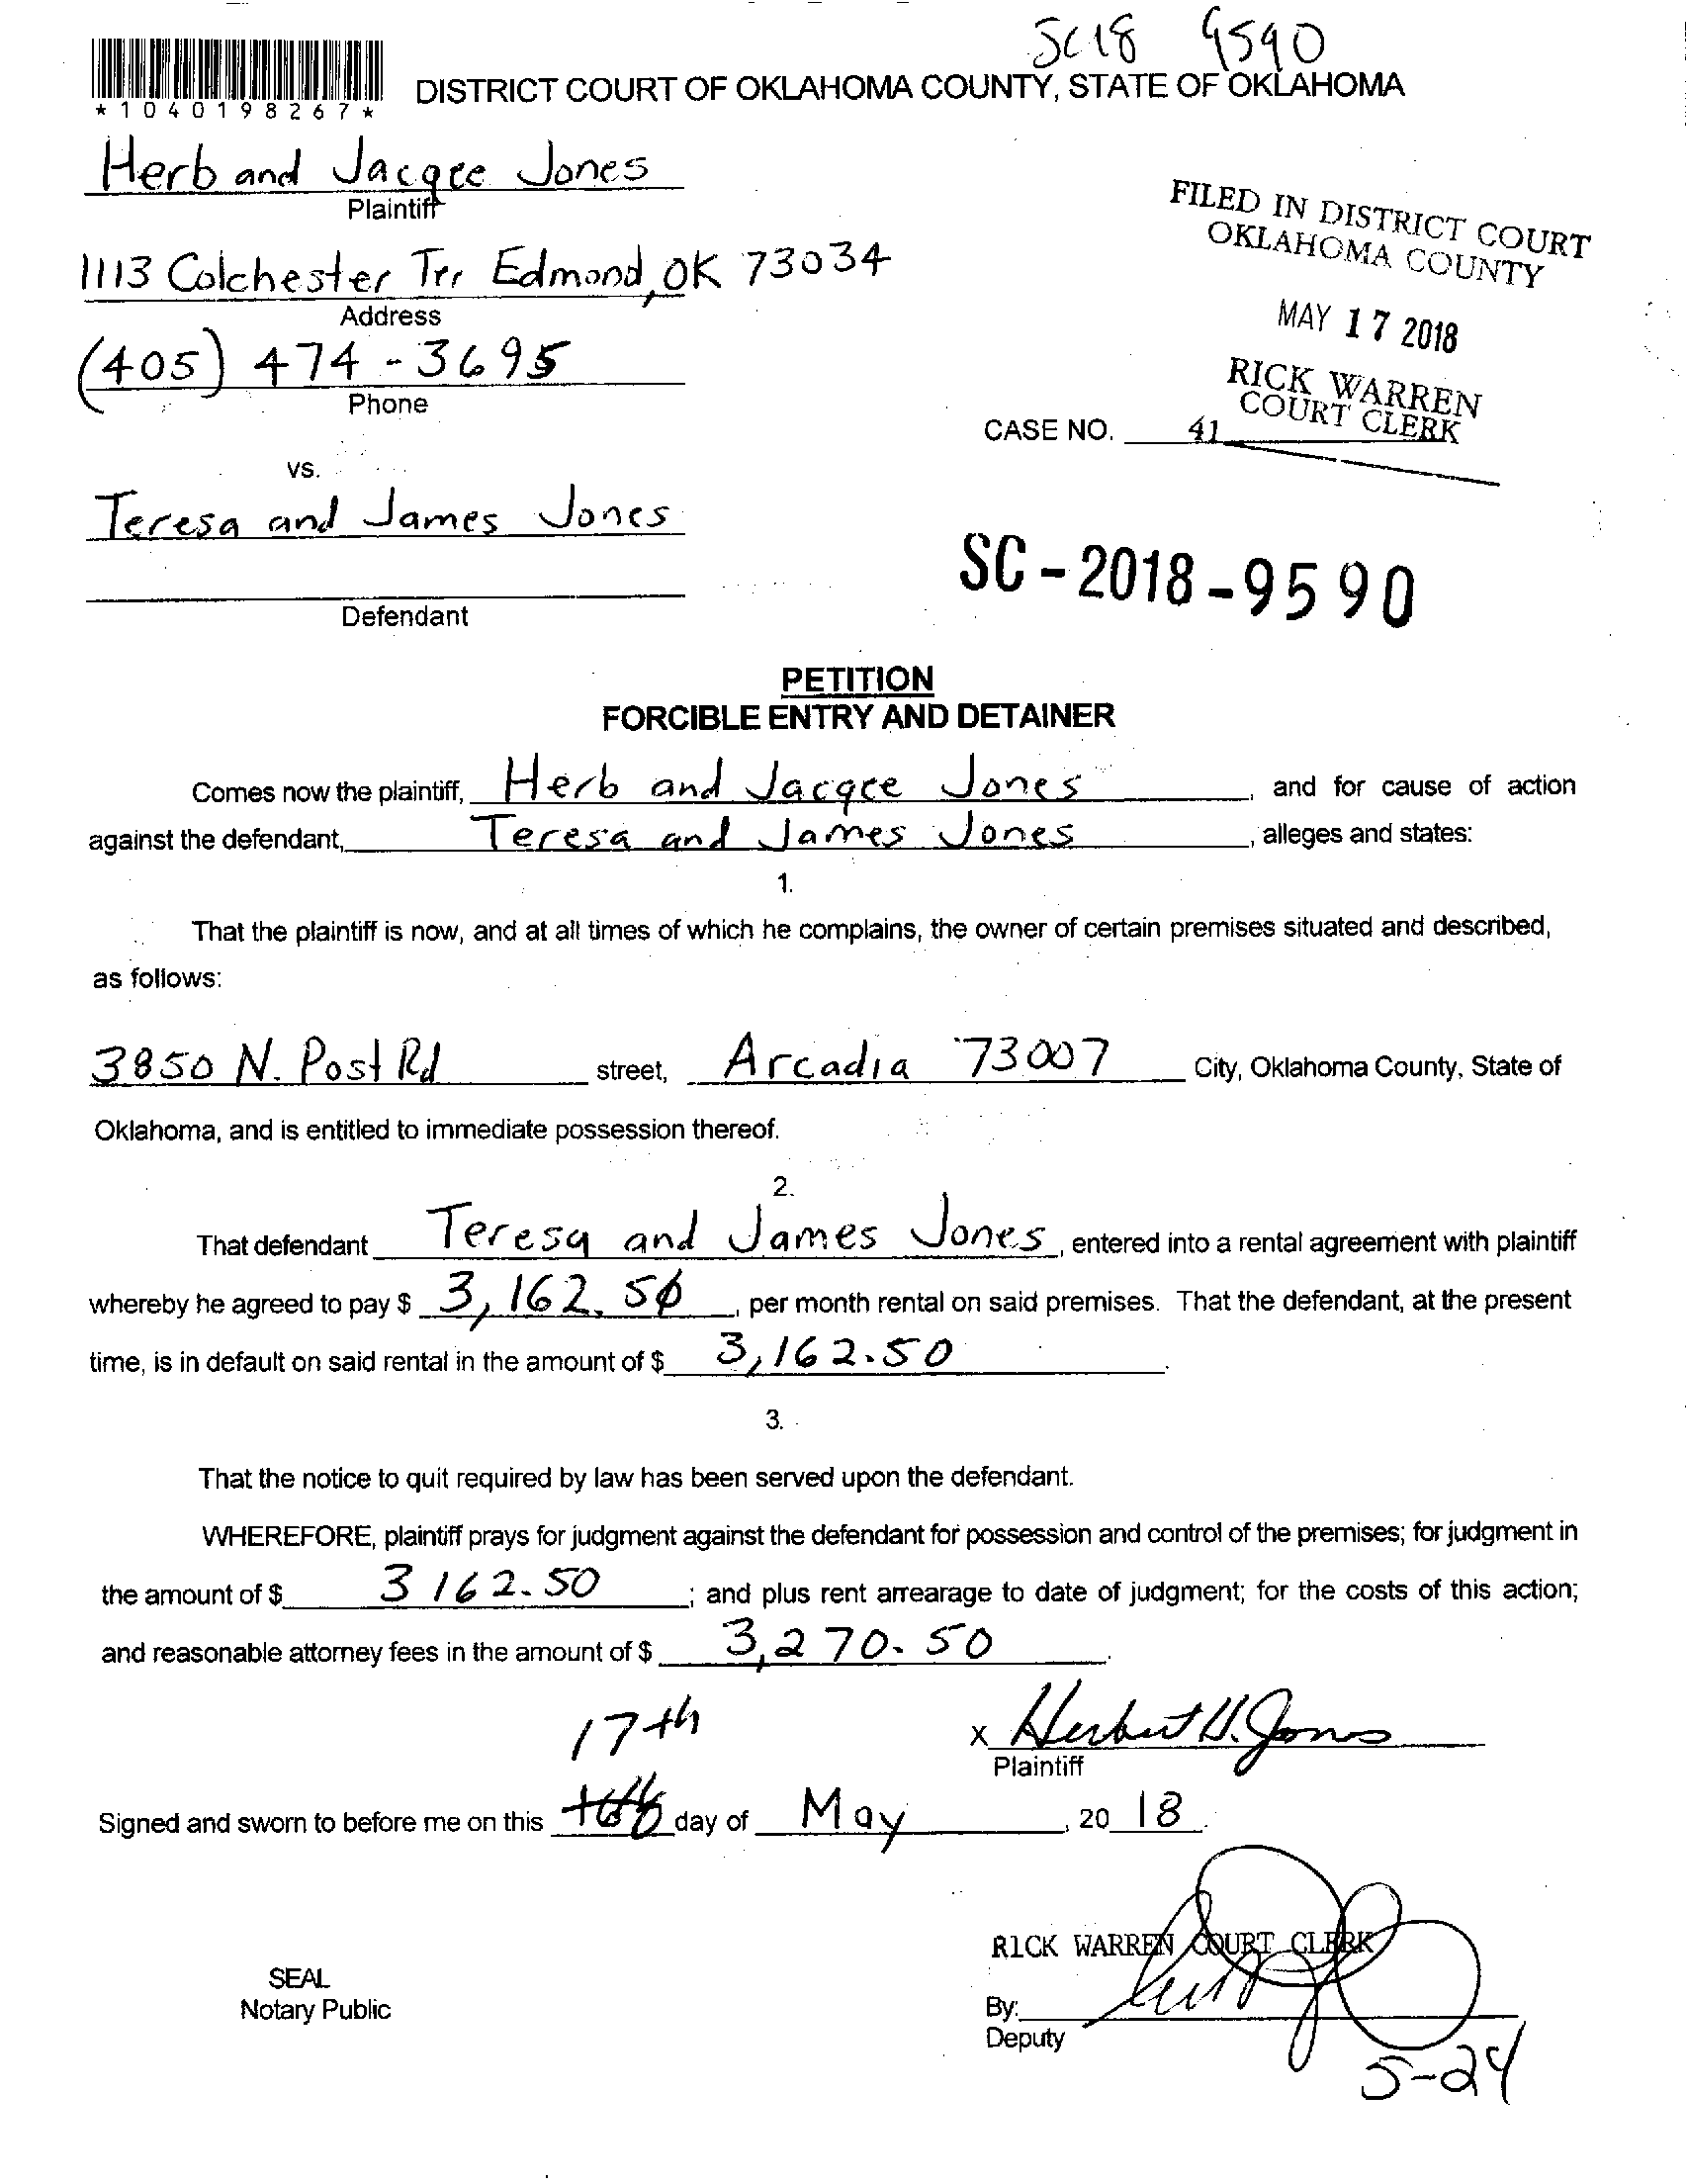 SC18 9590
*1040198267*
DISTRICT COURT OF OKLAHOMA COUNTY, STATE OF OKLAHOMA
Herb and Jacqee Jones
Plaintiff
1113 Colchester Trr Edmond, OK 73034
Address
(405) 474-3695
Phone
FILED IN DISTRICT COURT
OKLAHOMA COUNTY
MAY 17 2018
RICK WARREN
COURT CLERK
CASE NO. 41
vs.
Teresa and James Jones
Defendant
SC-2018-9590
PETITION
FORCIBLE ENTRY AND DETAINER
Comes now the plaintiff, Herb and Jacqee Jones, and for cause of action
against the defendant, Teresa and James Jones, alleges and states:
1.
That the plaintiff is now, and at all times of which he complains, the owner of certain premises situated and described,
as follows:
3850 N. Post Rd street, Arcadia 73007 City, Oklahoma County, State of
Oklahoma, and is entitled to immediate possession thereof.
2.
That defendant Teresa and James Jones, entered into a rental agreement with plaintiff
whereby he agreed to pay $ 3,162.50, per month rental on said premises. That the defendant, at the present
time, is in default on said rental in the amount of $ 3,162.50.
3.
That the notice to quit required by law has been served upon the defendant.
WHEREFORE, plaintiff prays for judgment against the defendant for possession and control of the premises; for judgment in
the amount of $ 3162.50; and plus rent arrearage to date of judgment; for the costs of this action;
and reasonable attorney fees in the amount of $ 3,270.50.
17th
x Herbert H. Jones
Plaintiff
Signed and sworn to before me on this day of May, 20 18.
RICK WARREN COURT CLERK
SEAL
Notary Public
By:
Deputy
5-24